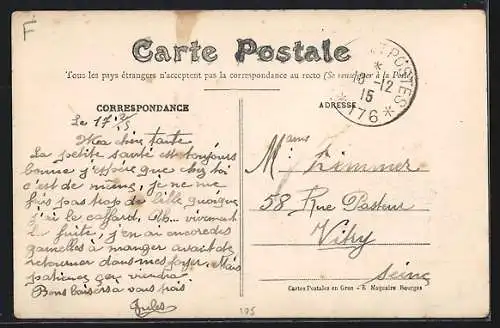 F
Carte Postale
Tous les pays étrangers n'acceptent pas la correspondance au recto (Se renseigner à la Poste)
POSTES
18-12
15
* 176 *
CORRESPONDANCE
ADRESSE
Le 17
Ma chère tante
La petite santé est toujours
bonne j'espère que chez toi
c'est de même, je ne me
fais pas trop de bile quoique
j'ai le caffard, vivement
la fuite, j'en ai encore des
gamelles à manger avant de
retourner dans mes foyer. Mais
patience ça viendra
Bons baisers a vous trois
Jules
Mme Zimmer
58 Rue Pasteur
Vitry
Seine
Cartes Postales en Gros - E. Maquaire Bourges
195